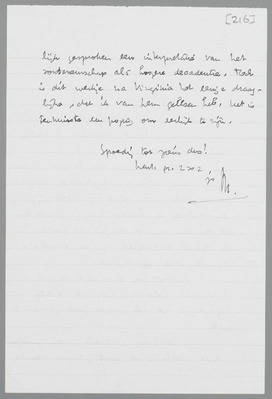 [216]
lijk gesproken een interpretatie van het
zondenaarschap als hogere decadentie. Toch
is dit werkje na Virginia het enige draag-
lijke, dat ik van hem gelezen heb. Het is
tenminste een poging om eerlijk te zijn.
Spoedig tot ziens dus!
je M.